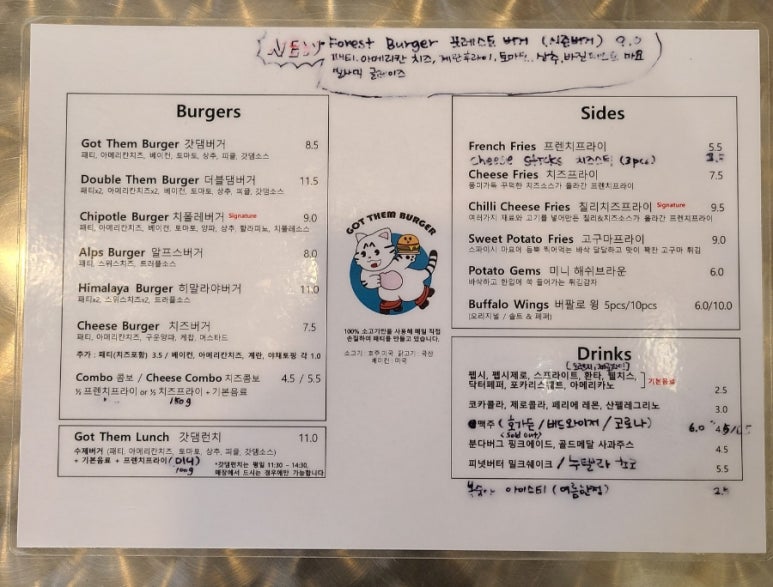 NEW Forest Burger 포레스트 버거 (시즌버거) 9.0
패티, 아메리칸 치즈, 계란후라이, 토마토, 상추, 바질 마요
발사믹 글레이즈
Burgers
Got Them Burger 갓댐버거 8.5
패티, 아메리칸치즈, 베이컨, 토마토, 상추, 피클, 갓댐소스
Double Them Burger 더블댐버거 11.5
패티x2, 아메리칸치즈x2, 베이컨, 토마토, 상추, 피클, 갓댐소스
Chipotle Burger 치폴레버거 Signature 9.0
패티, 아메리칸치즈, 베이컨, 토마토, 양파, 상추, 할라피뇨, 치폴레소스
Alps Burger 알프스버거 8.0
패티, 스위스치즈, 트러플소스
Himalaya Burger 히말라야버거 11.0
패티x2, 스위스치즈x2, 트러플소스
Cheese Burger 치즈버거 7.5
패티, 아메리칸치즈, 구운양파, 케찹, 머스타드
추가 : 패티(치즈포함) 3.5 / 베이컨, 아메리카치즈, 계란, 야채토핑 각 1.0
Combo 콤보 / Cheese Combo 치즈콤보 4.5 / 5.5
½ 프렌치프라이 or ½ 치즈프라이 + 기본음료
150g
Got Them Lunch 갓댐런치 11.0
수제버거 (패티, 아메리칸치즈, 토마토, 상추, 피클, 갓댐소스)
+ 기본음료 + 프렌치프라이 / 미니
100g
*갓댐런치는 평일 11:30 ~ 14:30,
매장에서 드시는 경우에만 가능합니다.
GOT THEM BURGER
100% 소고기만을 사용해 매일 직접
손질하여 패티를 만들고 있습니다.
소고기 : 호주,미국 닭고기 : 국산
베이컨 : 미국
Sides
French Fries 프렌치프라이 5.5
cheese sticks 치즈스틱 (3pcs)
Cheese Fries 치즈프라이 7.5
풍미가득 꾸덕한 치즈소스가 올라간 프렌치프라이
Chilli Cheese Fries 칠리치즈프라이 Signature 9.5
여러가지 재료와 고기를 넣어만든 칠리&치즈소스가 올라간 프렌치프라이
Sweet Potato Fries 고구마프라이 9.0
스파이시 마요에 듬뿍 찍어먹는 바삭 달달하고 맛이 꽉찬 고구마 튀김
Potato Gems 미니 해쉬브라운 6.0
바삭하고 한입에 쏙 들어가는 튀긴감자
Buffalo Wings 버팔로 윙 5pcs/10pcs 6.0/10.0
(오리지널 / 솔트 & 페퍼)
Drinks
펩시, 펩시제로, 스프라이트, 환타, 웰치스,
닥터페퍼, 포카리스웨트, 아메리카노
기본음료
2.5
코카콜라, 제로콜라, 페리에 레몬, 산펠레그리노 3.0
맥주 ( 호가든 / 버드와이저 / 코로나 ) 6.0
(sold out)
분다버그 핑크에이드, 골드메달 사과주스 4.5
피넛버터 밀크쉐이크 / 누텔라 초코 5.5
복숭아 아이스티 (여름한정)